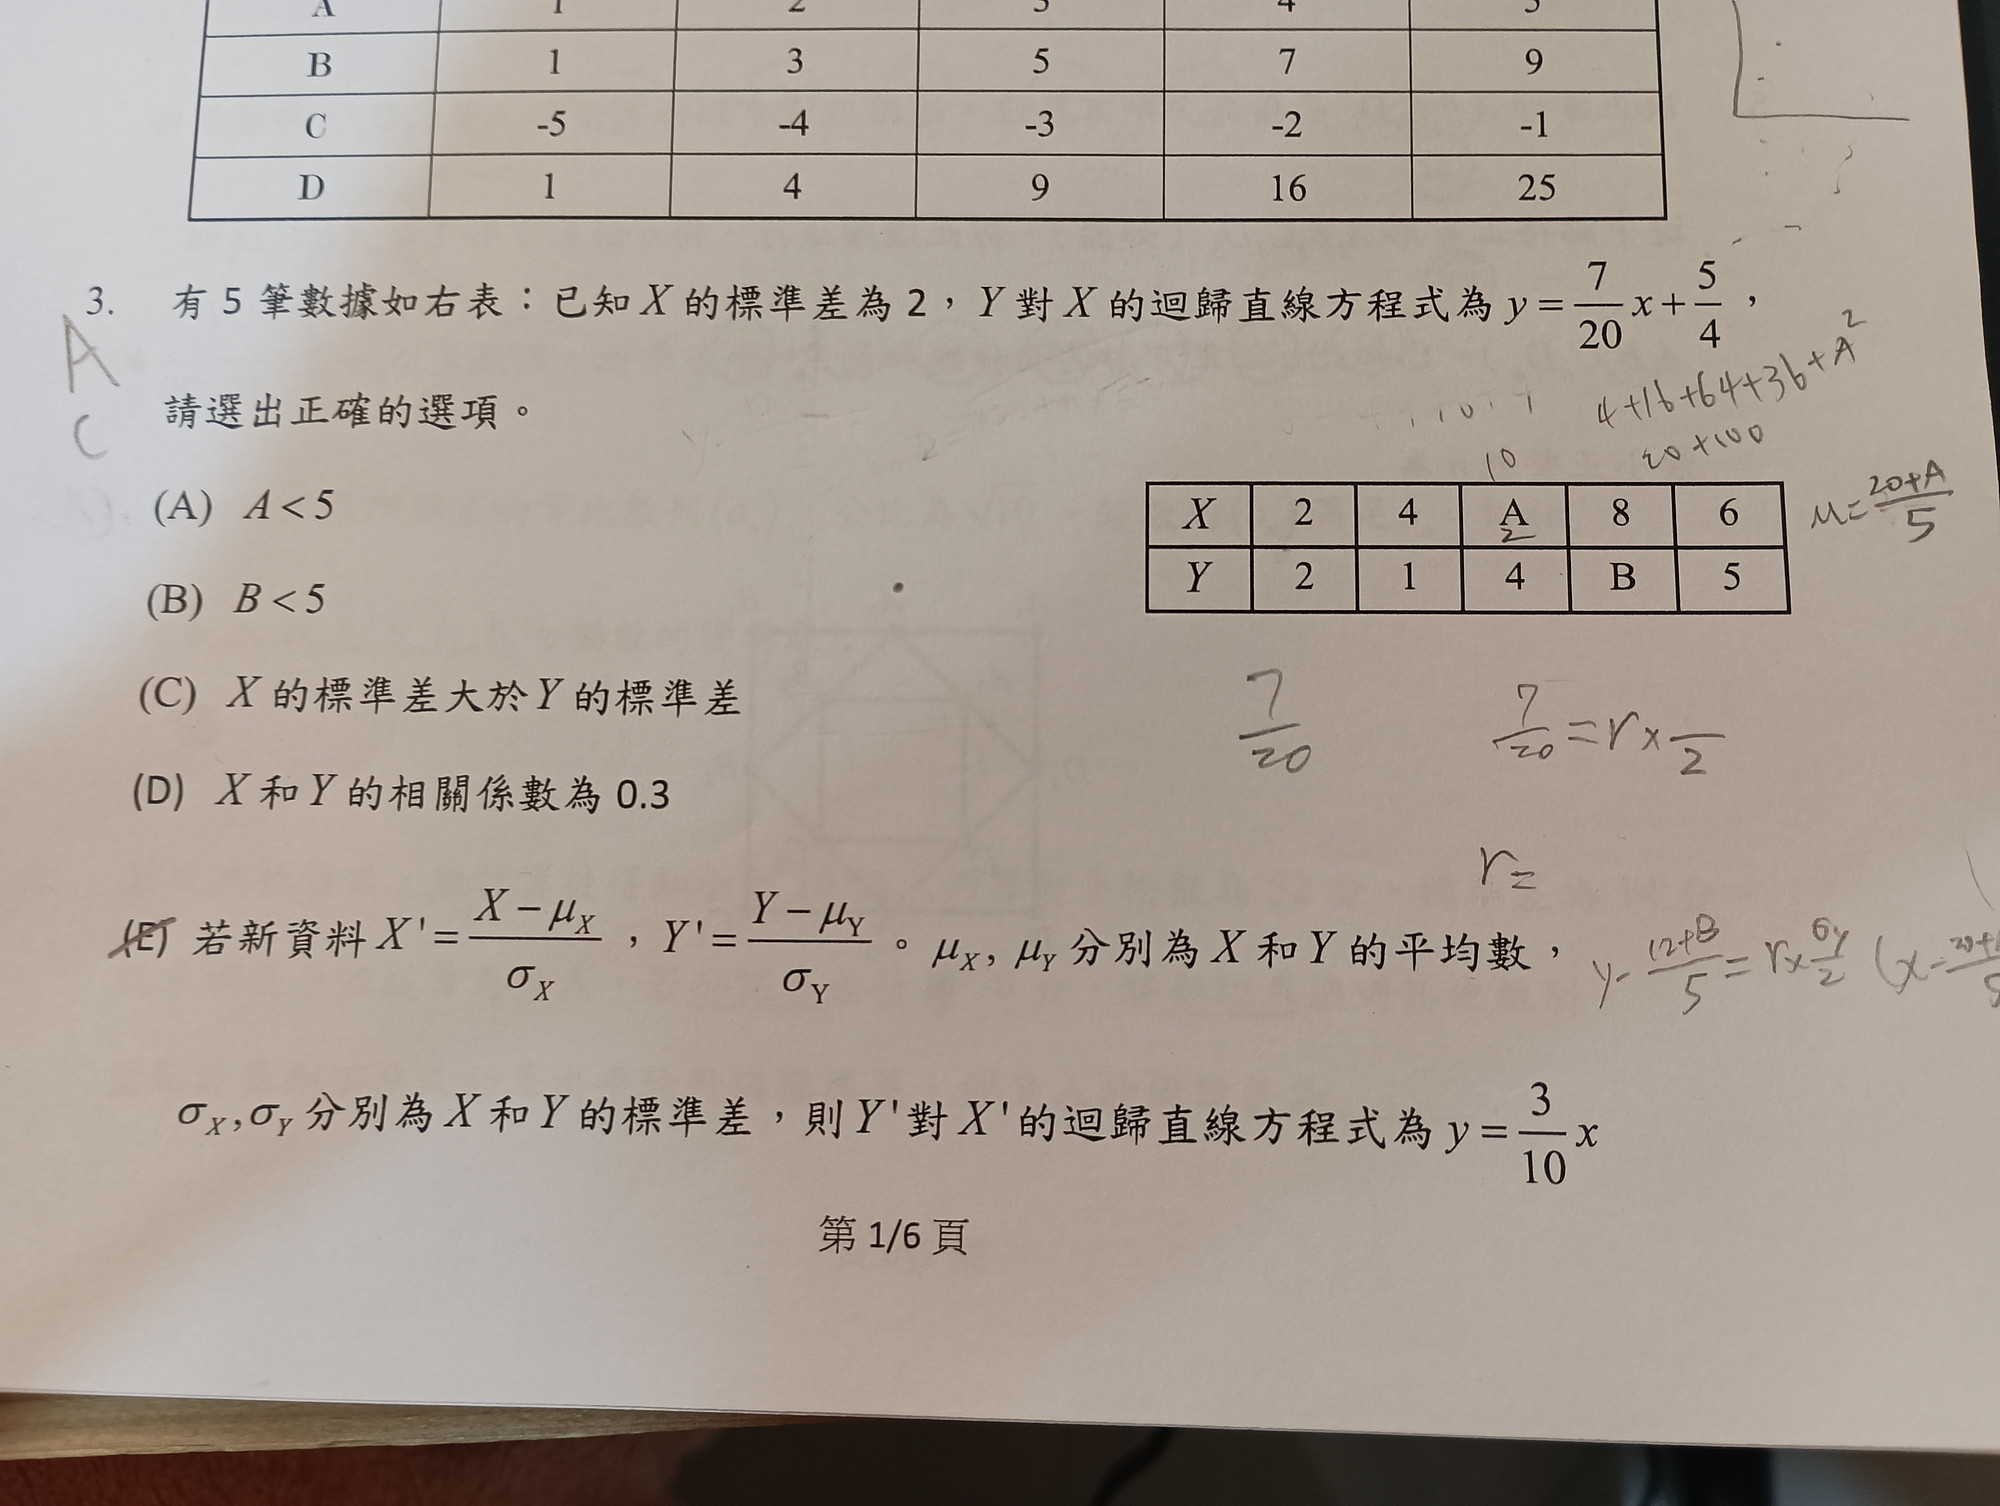 A 1 2 3 4 5
B 1 3 5 7 9
C -5 -4 -3 -2 -1
D 1 4 9 16 25
3. 有 5 筆數據如右表：已知 X 的標準差為 2，Y 對 X 的迴歸直線方程式為 y = 7/20 x + 5/4，
A
C
請選出正確的選項。
4+16+64+36+A²
20+100
10
(A) A < 5
X 2 4 A 8 6
2
μ = 20+A/5
Y 2 1 4 B 5
(B) B < 5
(C) X 的標準差大於 Y 的標準差
7/20
7/20 = r × /2
(D) X 和 Y 的相關係數為 0.3
r=
(E) 若新資料 X' = X − μX / σX，Y' = Y − μY / σY。μX, μY 分別為 X 和 Y 的平均數，
y- 12+B/5 = r× σy/2 (x-
σX, σY 分別為 X 和 Y 的標準差，則 Y' 對 X' 的迴歸直線方程式為 y = 3/10 x
第 1/6 頁